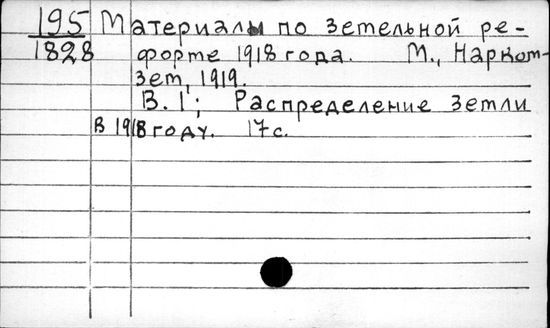 195 Материалы по земельной ре-
1828 форме 1918 года. М., Нарком-
зем, 1919.
В. 1; Распределение земли
в 1918 году. 17 с.